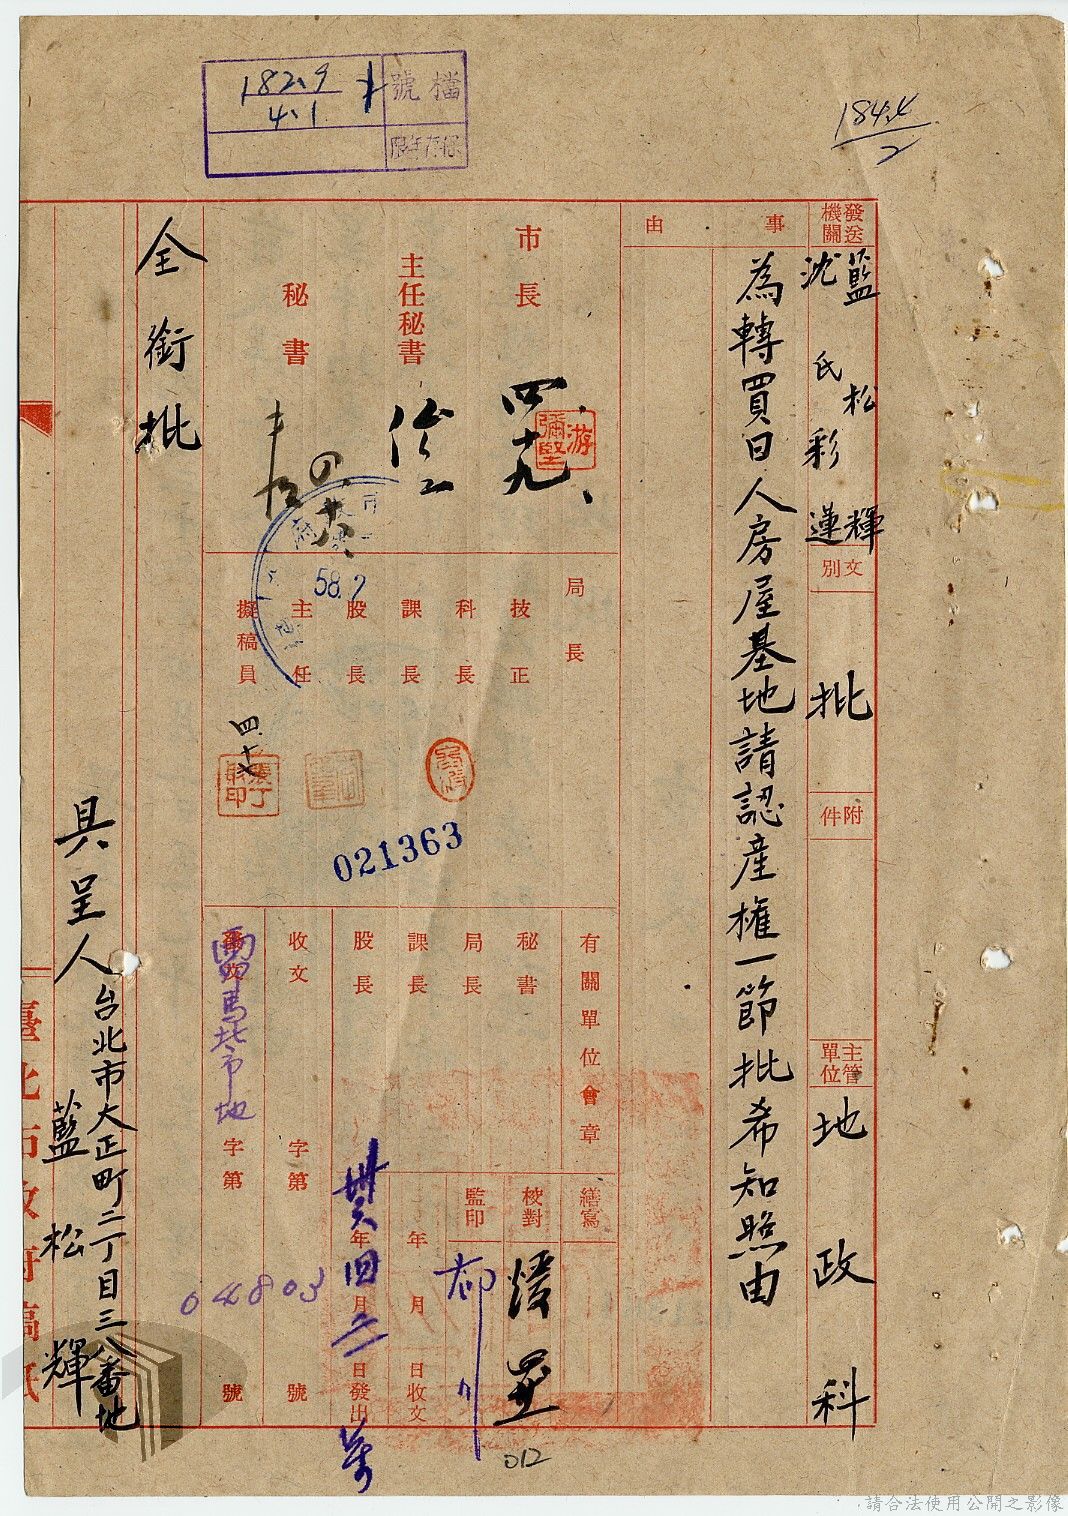 檔號
182.9
4.1
保存年限
184.4
2
發送機關
藍松輝
沈氏彩蓮
文別
批
附件
主管單位
地政科
事由
為轉買日人房屋基地請認産權一節批希知照由
市長
四、十九、
游彌堅
主任秘書
秘書
局長
技正
科長
課長
股長
主任
擬稿員
58.7
四、十
021363
有關單位會章
秘書
局長
課長
股長
繕寫
校對
監印
年 月 日收文
年四月 日發出
收文 字第 號
字第 號
04803
全銜批
具呈人
台北市大正町二丁目三八番地
藍松輝
臺北市政府稿紙
012
請合法使用公開之影像